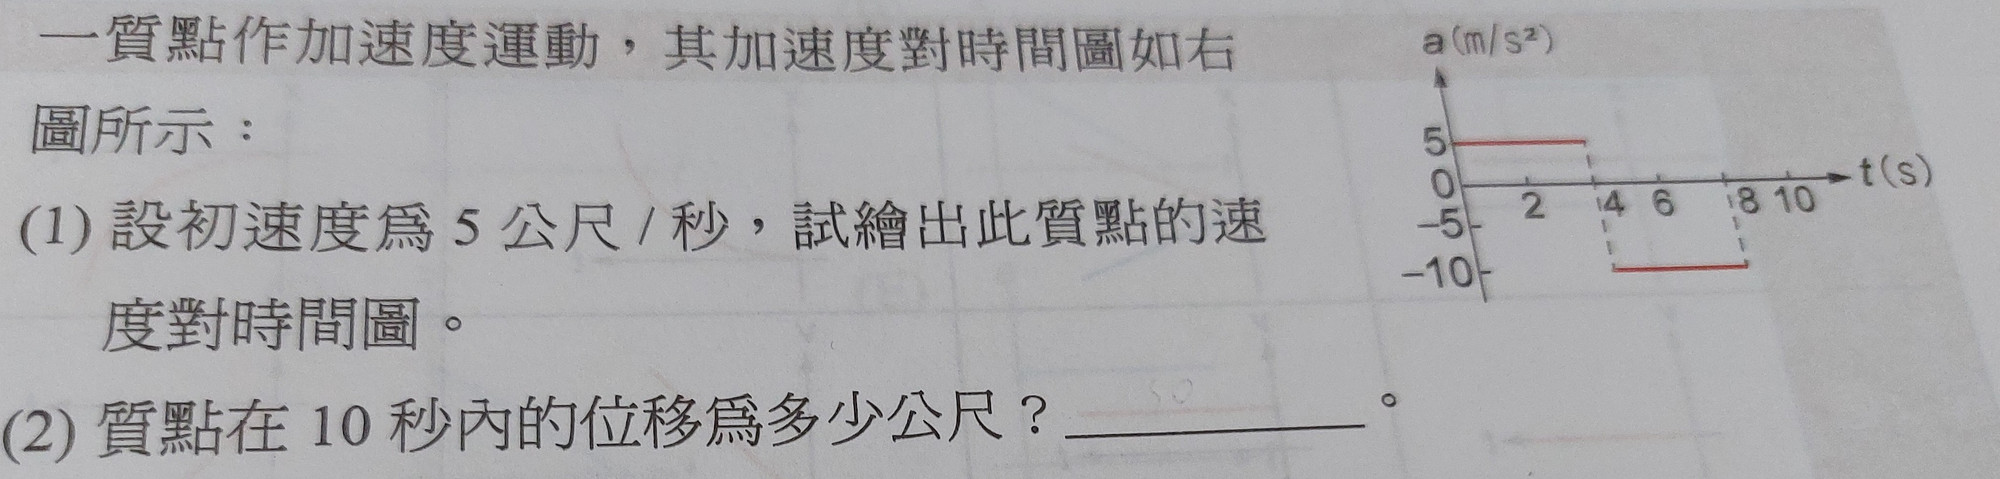 一質點作加速度運動，其加速度對時間圖如右
圖所示：
(1) 設初速度爲 5 公尺 / 秒，試繪出此質點的速
度對時間圖。
(2) 質點在 10 秒內的位移爲多少公尺？________。
50
a(m/s²)
5
0
-5
-10
2 4 6 8 10
t(s)